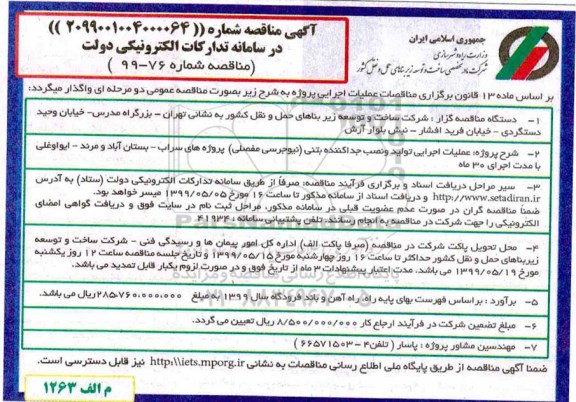 آگهی مناقصه شماره (( ۲۰۹۹۰۰۱۰۰۴۰۰۰۰۶۴ ))
در سامانه تدارکات الکترونیکی دولت
(مناقصه شماره ۷۶-۹۹)
جمهوری اسلامی ایران
وزارت راه و شهرسازی
شرکت مادر تخصصی ساخت و توسعه زیربناهای حمل و نقل کشور
بر اساس ماده ۱۳ قانون برگزاری مناقصات عملیات اجرایی پروژه به شرح زیر بصورت مناقصه عمومی دو مرحله ای واگذار میگردد:
۱- دستگاه مناقصه گزار : شرکت ساخت و توسعه زیر بناهای حمل و نقل کشور به نشانی تهران - بزرگراه مدرس- خیابان وحید
دستگردی - خیابان فرید افشار - نبش بلوار آرش
۲- شرح پروژه: عملیات اجرایی تولید ونصب جداکننده بتنی (نیوجرسی مفصلی) پروژه های سراب - بستان آباد و مرند - ایواوغلی
با مدت اجرای ۳۰ ماه
۳- سیر مراحل دریافت اسناد و برگزاری فرآیند مناقصه: صرفاً از طریق سامانه تدارکات الکترونیکی دولت (ستاد) به آدرس
http://www.setadiran.ir و دریافت اسناد از سامانه مذکور تا ساعت ۱۶ مورخ ۱۳۹۹/۰۵/۰۵ میسر خواهد بود.
ضمناً مناقصه گران در صورت عدم عضویت قبلی در سامانه مذکور، مراحل ثبت نام در سایت فوق و دریافت گواهی امضای
الکترونیکی را جهت شرکت در مناقصه به انجام رسانند. تلفن پشتیبانی سامانه : ۴۱۹۳۴
۴- محل تحویل پاکت شرکت در مناقصه (صرفا پاکت الف) اداره کل امور پیمان ها و رسیدگی فنی - شرکت ساخت و توسعه
زیربناهای حمل و نقل کشور حداکثر تا ساعت ۱۶ روز چهارشنبه مورخ ۱۳۹۹/۰۵/۱۵ و تاریخ جلسه مناقصه ساعت ۱۲ روز یکشنبه
مورخ ۱۳۹۹/۰۵/۱۹ می باشد. مدت اعتبار پیشنهادات ۳ ماه از تاریخ فوق و در صورت لزوم یکبار قابل تمدید می باشد.
۵- برآورد : براساس فهرست بهای پایه راه، راه آهن و باند فرودگاه سال ۱۳۹۹ به مبلغ ۲۸۵۷۶۰.۰۰۰.۰۰۰ریال می باشد.
۶- مبلغ تضمین شرکت در فرآیند ارجاع کار ۸/۵۰۰/۰۰۰/۰۰۰ ریال تعیین می گردد.
۷- مهندسین مشاور پروژه : پاسار ( تلفن۴-۶۶۵۷۱۵۰۳ )
ضمنا آگهی مناقصه از طریق پایگاه ملی اطلاع رسانی مناقصات به نشانی http:\\iets.mporg.ir نیز قابل دسترسی است.
م الف ۱۲۶۳